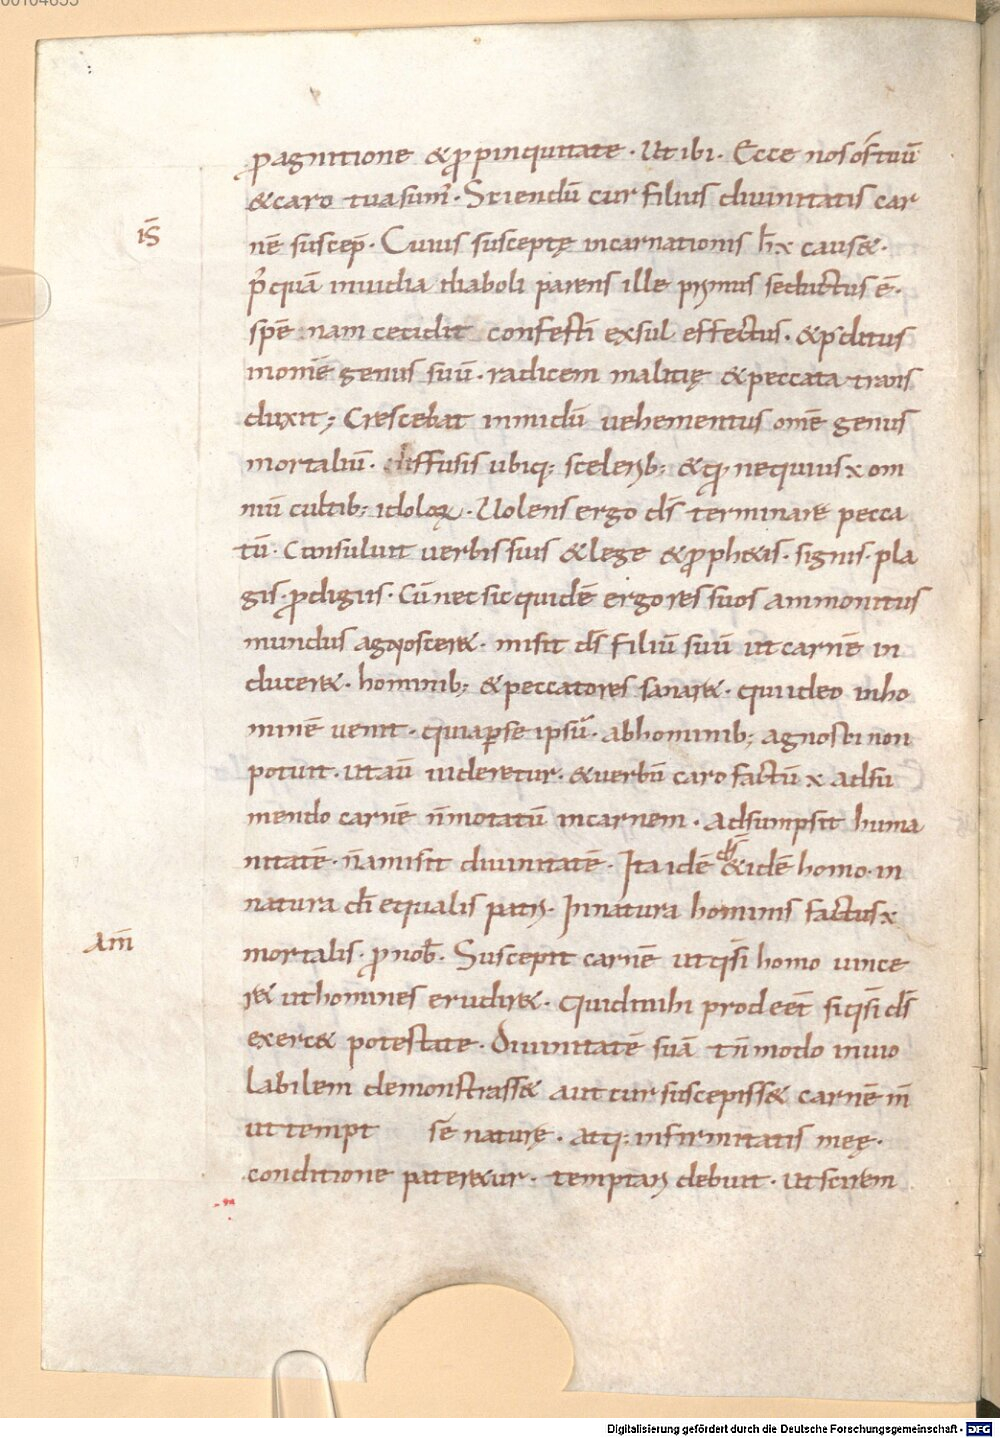 00104055
ꝓagnitione & ꝓpinquitate · Ut ibi · Ecce nos os̄ tuū
& caro tua sum᷒ · Sciendū cur filius diuinitatis car
is̄
nē suscep̄ · Cuius susceptę incarnationis h̄ x causę ·
inuidia diaboli parens ille primus seductus ē ·
spē nam cecidit confestī exsul effectus · &
genus suū · radicem malitię & peccata trans
duxit; Crescebat in mūdū uehementius omē genus
mortaliū · diffusis ubiq; scelerib; & nequius x om
niū cultib; idoloꝝ · Uolens ergo ds̄ terminare pecca
tū · Consuluit uerbis suis & lege & ꝓph&is · signis · pla
gis · ꝓdigiis · Cū nec sic quidē errores suos ammonitus
mundus agnoscer& · misit ds̄ filiū suū ut carnē in
ducer& · hominib; & peccatores sanar& · qui ideo in ho
minē uenit · quia ꝑ se ipsū · ab hominib; agnosci non
potuit · ut aū uideretur · & uerbū caro factū x adsu
mendo carnē n̄ motatū in carnem · Adsumpsit huma
nitatē · n̄ amisit diuinitatē · Ita idē ds̄ & idē homo · in
natura dī equalis patri · In natura hominis factus x
Am̄
mortalis · ꝓ nob̄ · Suscepit carnē ut qs̄i homo uince
r& ut homines erudir& · Quid mihi prodeēt si qs̄i ds̄
exerc& potestate · Diuinitatē suā tn̄ modo inuio
labilem demonstrass& aut cur suscepiss& carnē
ut tempt se naturę · atq; infirmitatis meę ·
conditione pater&ur · temptari debuit · ut scirem
Digitalisierung gefördert durch die Deutsche Forschungsgemeinschaft - DFG